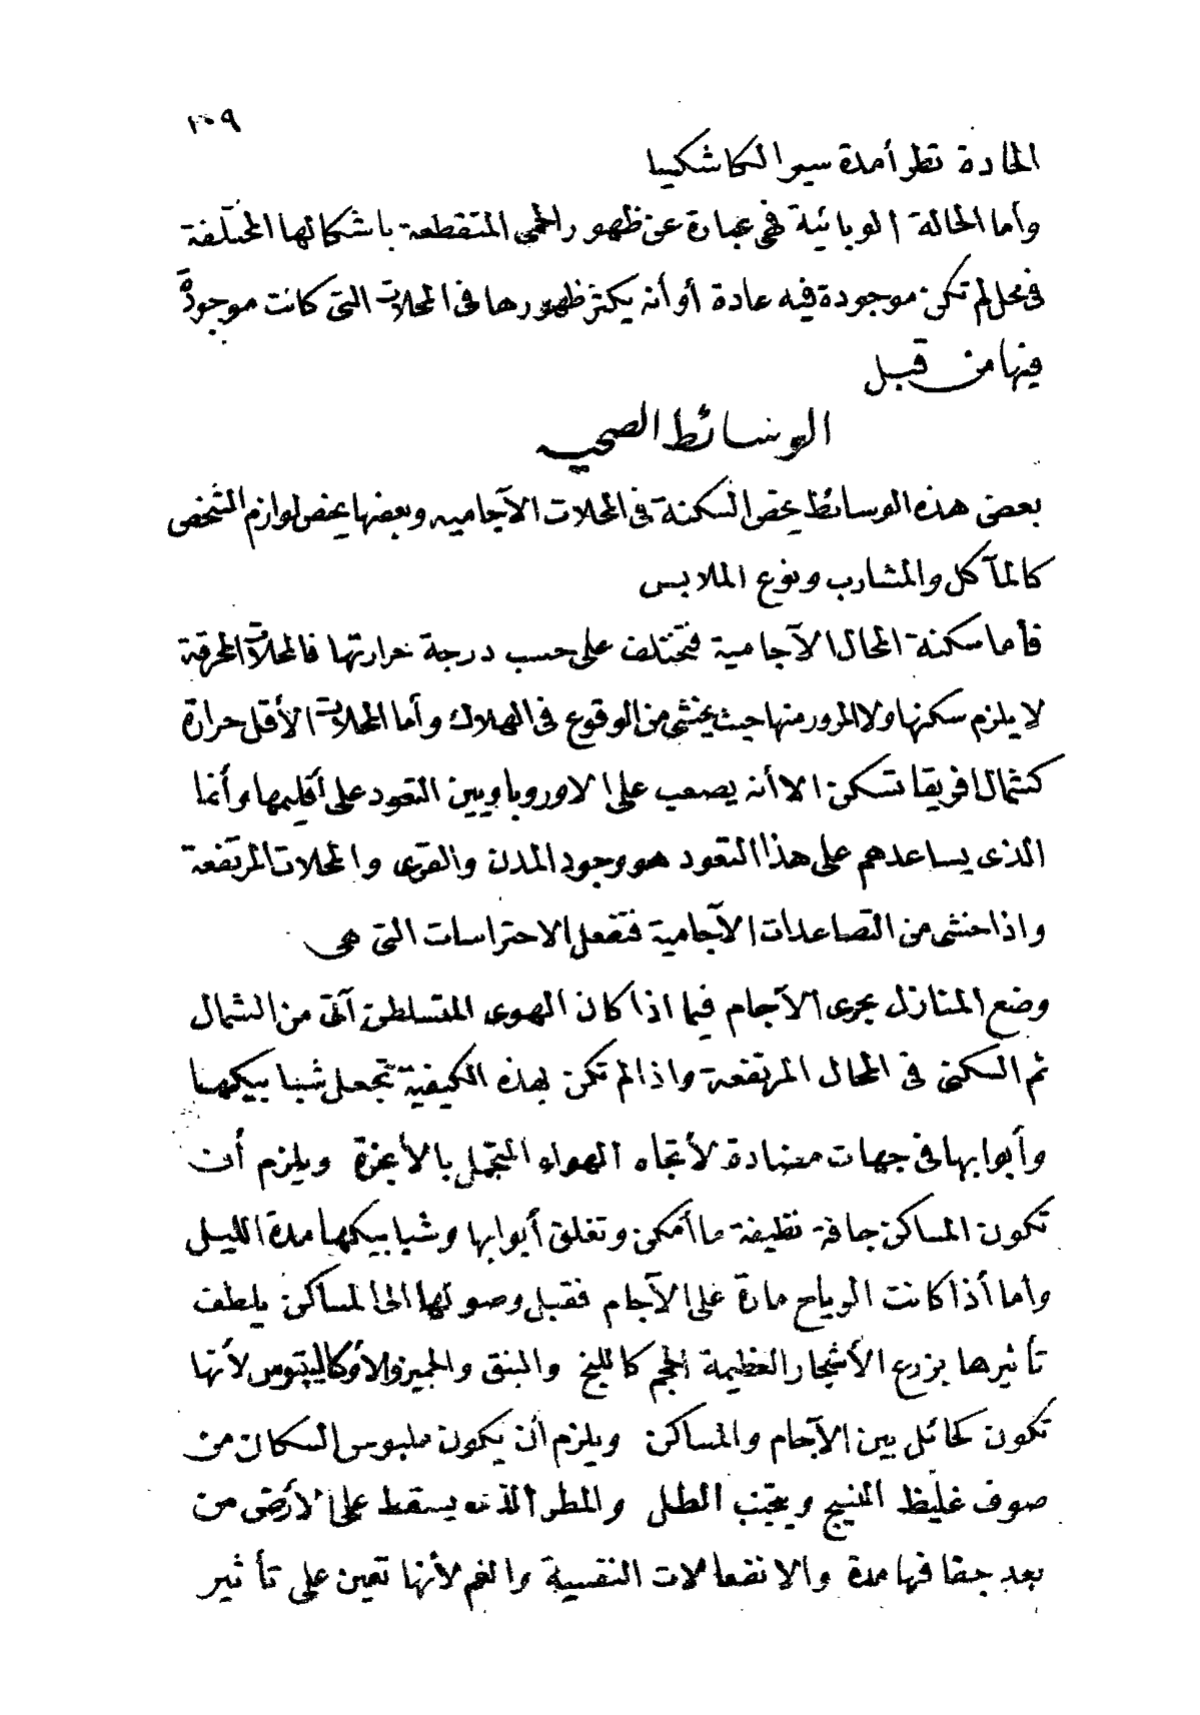 ١٠٩
الحادة نظرا لمدة سير الكاشكسيا
وأما الحالة الوبائية فهى عبارة عن ظهور الحمى المتقطعة باشكالها المختلفة
فى محل لم تكن موجودة فيه عادة أو أنه يكثر ظهورها فى المحلات التى كانت موجودة
فيها من قبل
الوسائط الصحيه
بعض هذه الوسائط يخص السكنة فى المحلات الآجاميه وبعضها يخص لوازم الشخص
كالمآكل والمشارب ونوع الملابس
فأما سكنة المحال الآجامية فتختلف على حسب درجة حرارتها فالمحلات المحرقة
لا يلزم سكنها ولا المرور منها حيث يخشى من الوقوع فى الهلاك وأما المحلات الأقل حرارة
كشمال افريقا تسكن الا أنه يصعب على الاوروباويين التعود على أقليمها وأنما
الذى يساعدهم على هذا التعود هو وجود المدن والقرى والمحلات المرتفعة
واذا خشى من التصاعدات الآجامية فتفعل الاحتراسات التى هى
وضع المنازل بحرى الآجام فيما اذا كان الهوى المتسلطن آتى من الشمال
ثم السكنى فى المحال المرتفعة واذا لم تكن بهذه الكيفية تجعل شبابيكها
وأبوابها فى جهات مضادة لأتجاه الهواء المتحمل بالأبخرة ويلزم أن
تكون المساكن جافة نظيفة ما أمكن وتغلق أبوابها وشبابيكها مدة الليل
وأما أذا كانت الرياح مارة على الآجام فقبل وصولها الى المساكن يلطف
تأثيرها بزرع الأشجار العظيمة الحجم كاللبخ والنبق والجميز والأوكاليبتوس لأنها
تكون كحائل بين الآجام والمساكن ويلزم أن يكون ملبوس السكان من
صوف غليظ النسيج ويجتنب الطل والمطر الذى يسقط على الأرض من
بعد جفافها مدة والانفعالات النفسية والغم لأنها تعين على تأثير